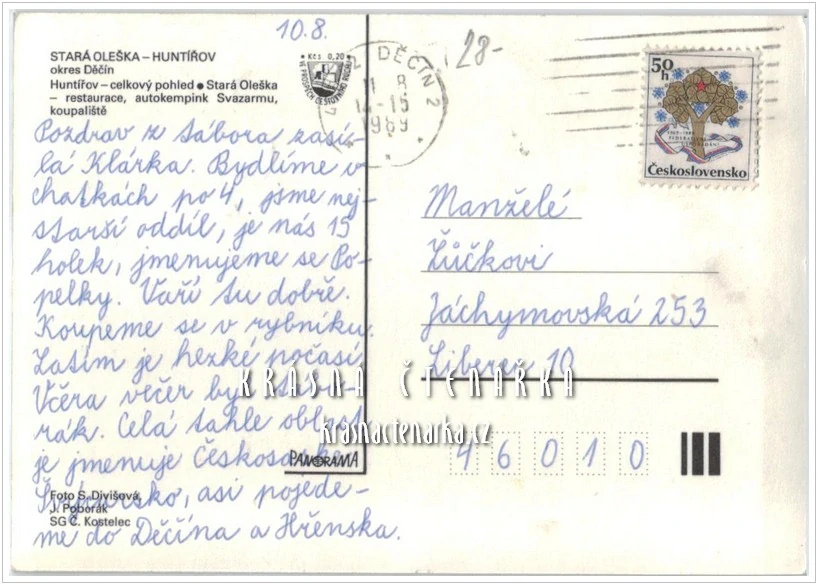 10.8.
28-
STARÁ OLEŠKA – HUNTÍŘOV
okres Děčín
Huntířov – celkový pohled ● Stará Oleška
– restaurace, autokempink Svazarmu,
koupaliště
Kčs 0,20
VE PROSPĚCH CESTOVNÍHO RUCHU
DĚČÍN 2
11 8
14-15
1989
50h
Československo
Pozdrav z tábora zasí-
lá Klárka. Bydlíme v
chatkách po 4, jsme nej-
starší oddíl, je nás 15
holek, jmenujeme se Po-
pelky. Vaří tu dobře.
Koupeme se v rybníku.
Zatím je hezké počasí.
Včera večer byl
rák. Celá tahle oblast
je jmenuje Českosa
Švýcarsko, asi pojede-
me do Děčína a Hřenska.
Manželé
Žůčkovi
Jáchymovská 253
Liberec 10
46010
KRÁSNÁ ČTENÁŘKA
krasnactenarka.cz
PANORAMA
Foto S. Divišová,
J. Poborák
SG Č. Kostelec